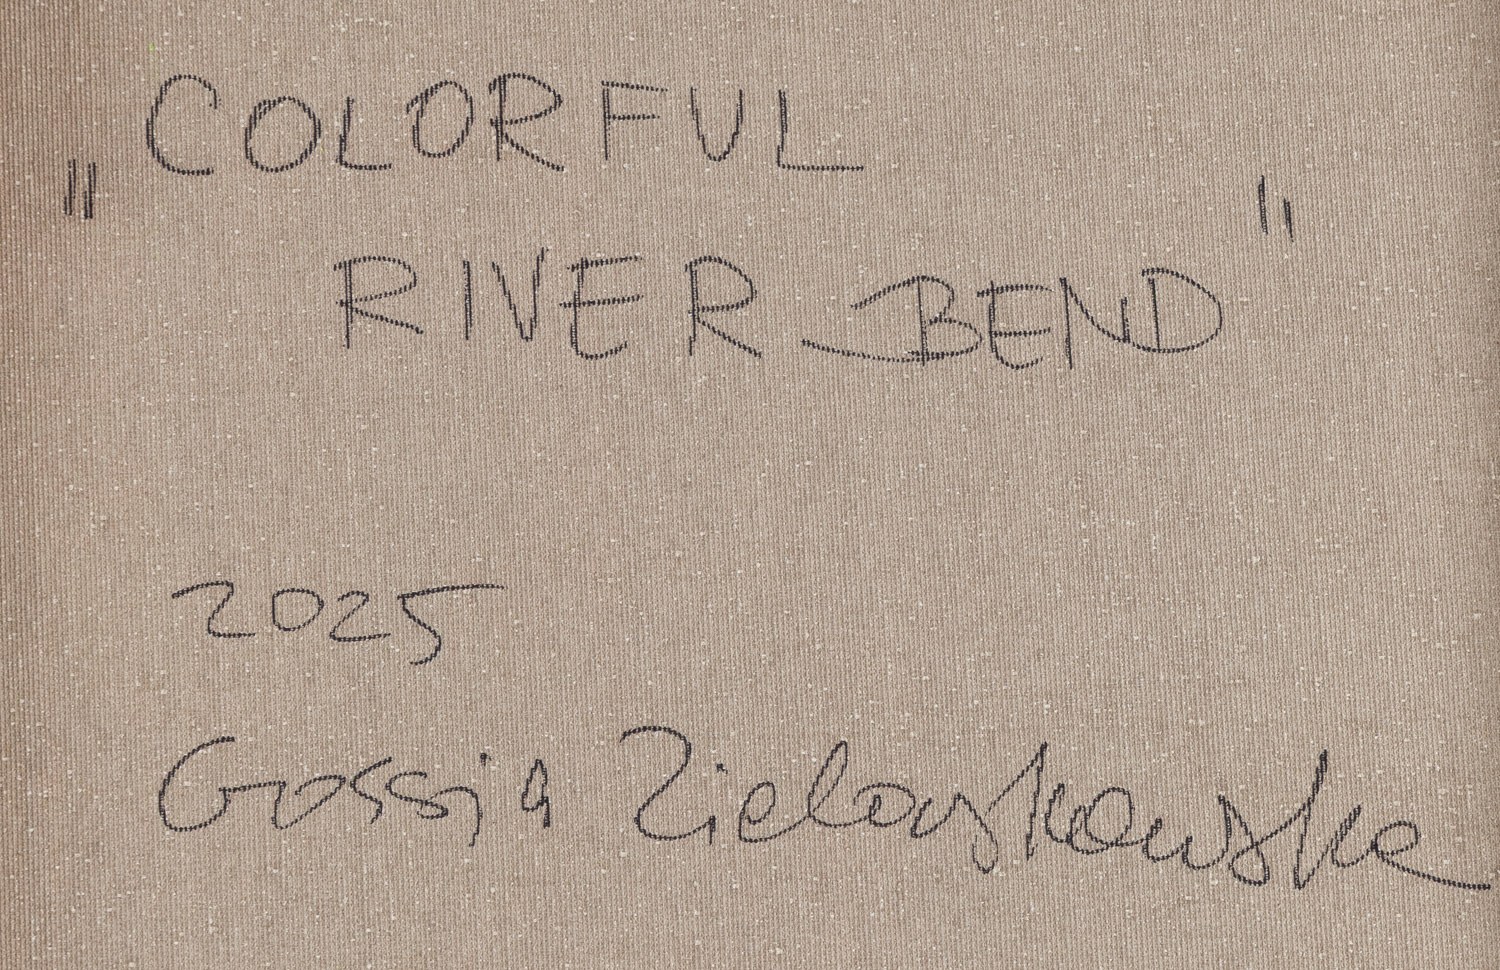 „COLORFUL
RIVER BEND"
2025
Gossia Zielaskowska